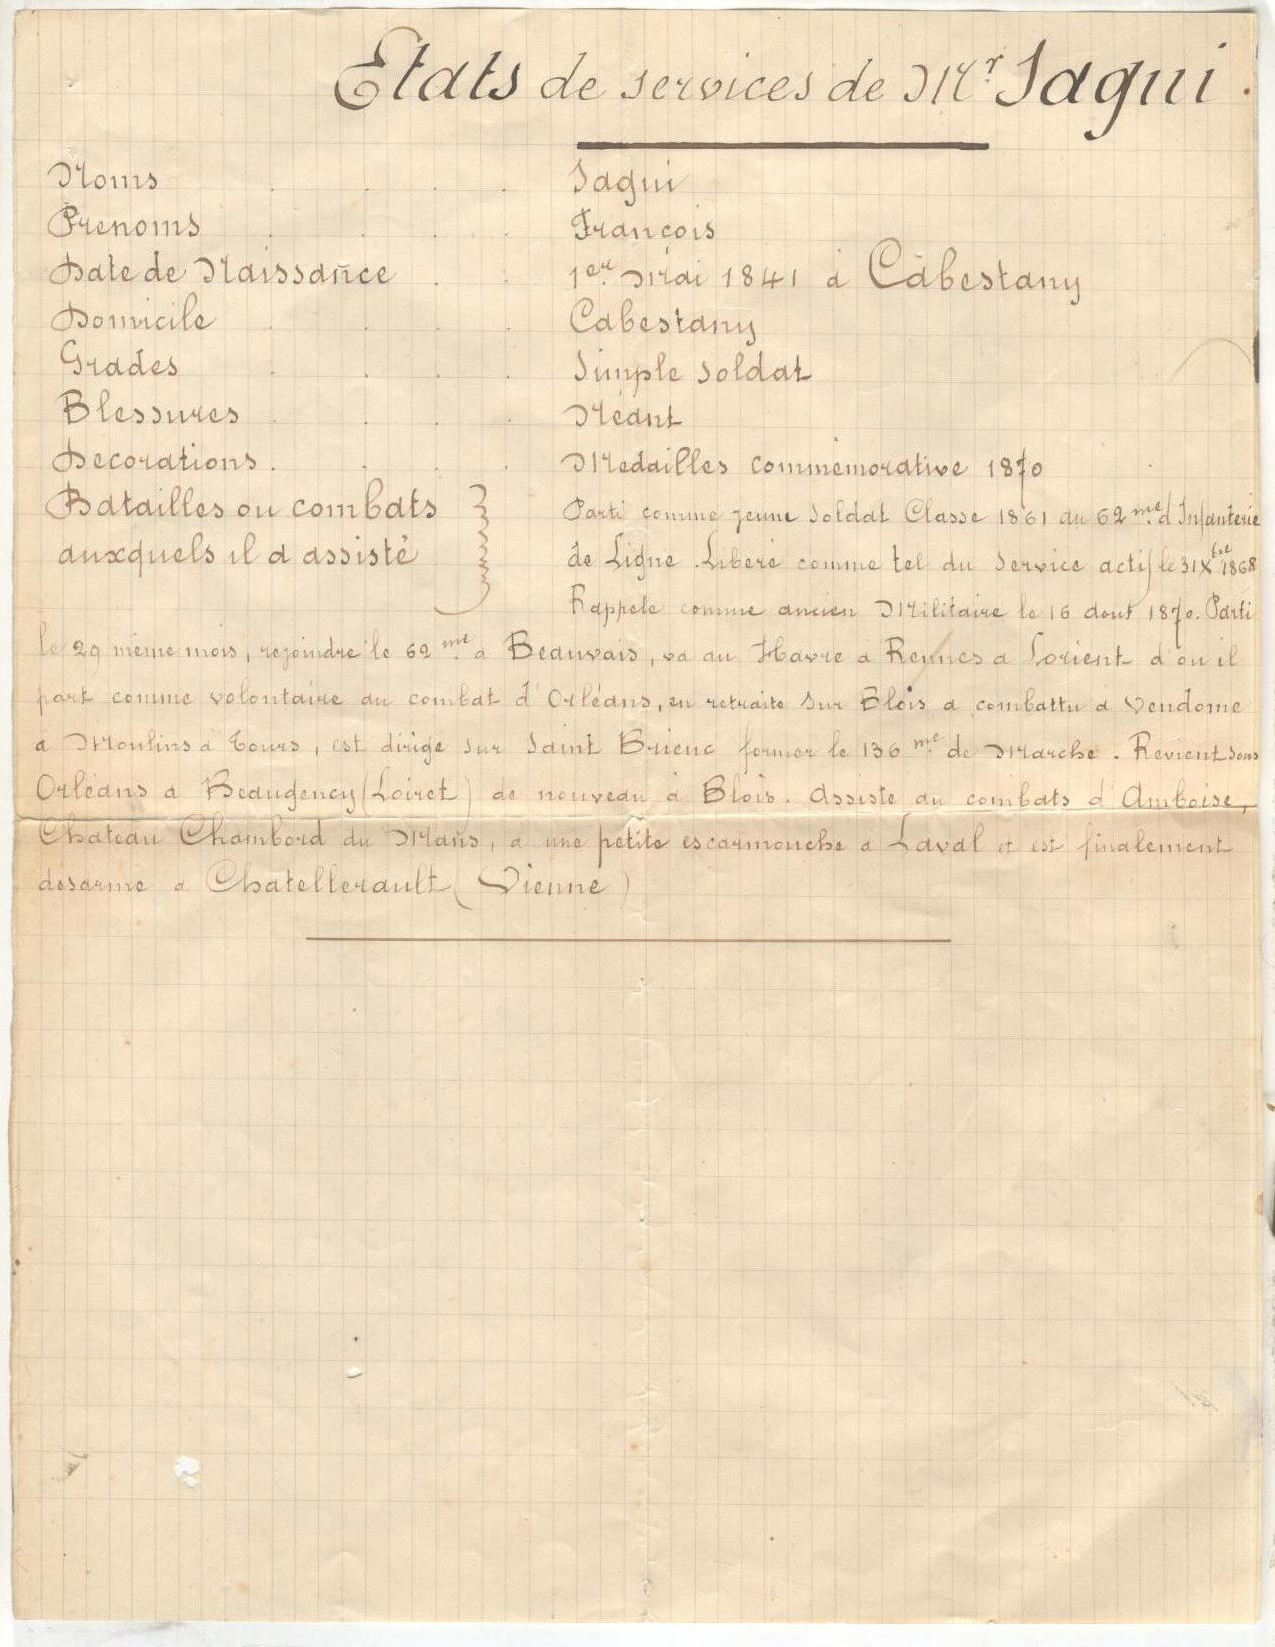 Etats de services de Mr. Sagui.
Noms . . . . Sagui
Prenoms . . . . François
Date de Naissance . . 1er. Mai 1841 à Cabestany
Domicile . . . . Cabestany
Grades . . . . Simple soldat
Blessures . . . . Néant
Decorations . . . . Medailles commémorative 1870
Batailles ou combats Parti comme jeune soldat Classe 1861 au 62me. d'Infanterie
auxquels il a assisté de Ligne. Libéré comme tel du service actif le 31 Xbre 1868
Rappelé comme ancien Militaire le 16 aout 1870. Parti
le 29 même mois, rejoindre le 62me. à Beauvais, va au Havre a Rennes a Lorient d'ou il
part comme volontaire au combat d'Orléans, en retraite sur Blois a combattu à Vendome
à Moulins à Tours, est dirigé sur Saint Brieuc former le 136me. de Marche. Revient sous
Orléans a Beaugency (Loiret) de nouveau à Blois. Assiste au combats d'Amboise,
Chateau Chambord du Mans, a une petite escarmouche a Laval et est finalement
desarmé a Chatellerault (Vienne)